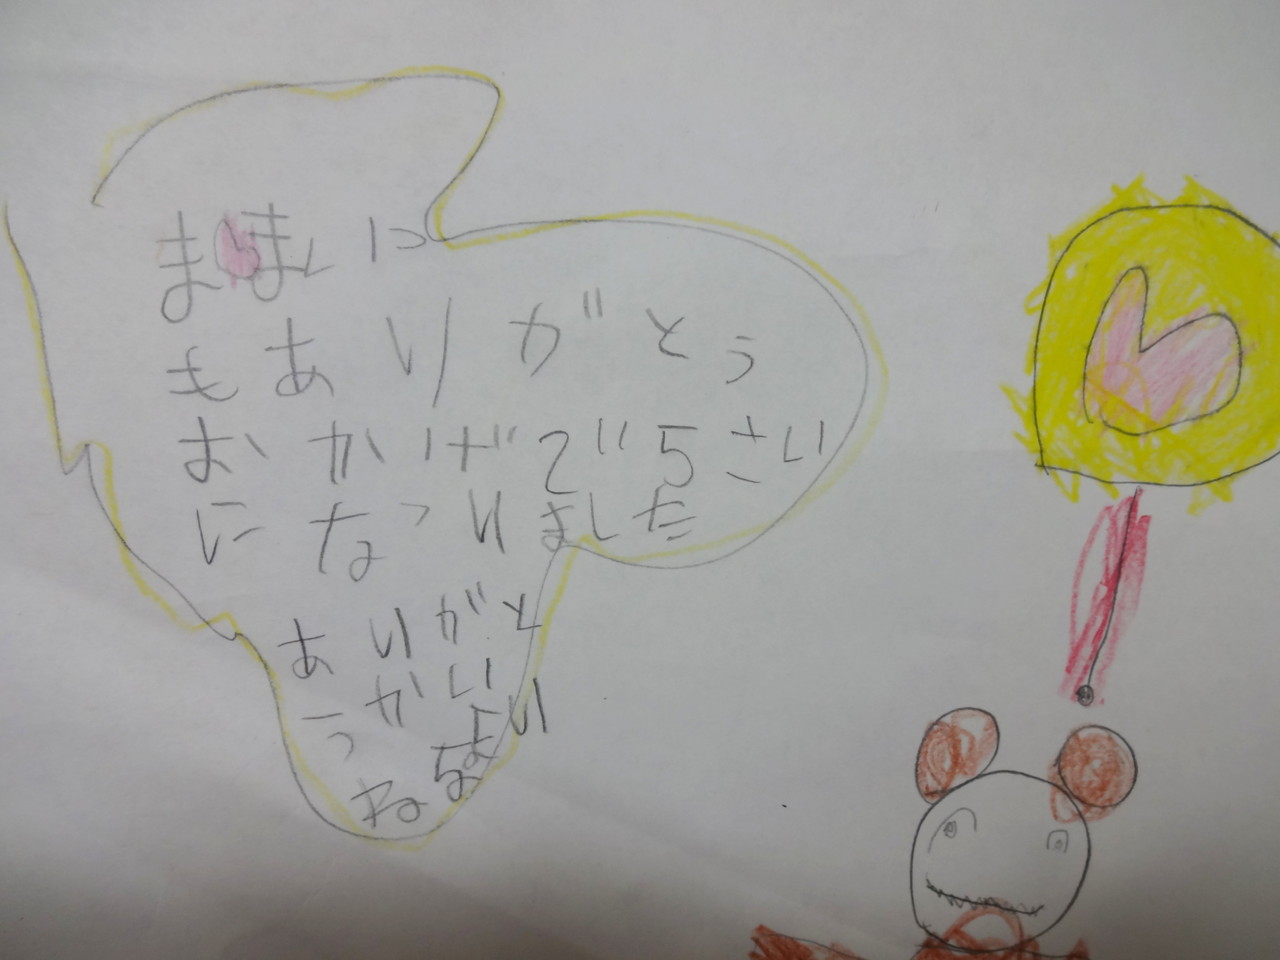 ままに
もありがとう
おかげで5さい
になつりました
ありがと
うかい
より
ねちょ